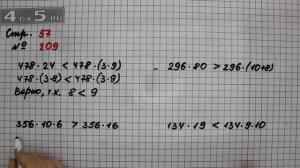 4DA5.RU
Стр. 57
№ 209
478 · 24 < 478 · (3 · 9)
478 · (3 · 8) < 478 · (3 · 9)
Верно, т.к. 8 < 9
296 · 80 > 296 · (10 + 8)
356 · 10 · 6 > 356 · 16
134 · 19 < 134 · 9 · 10